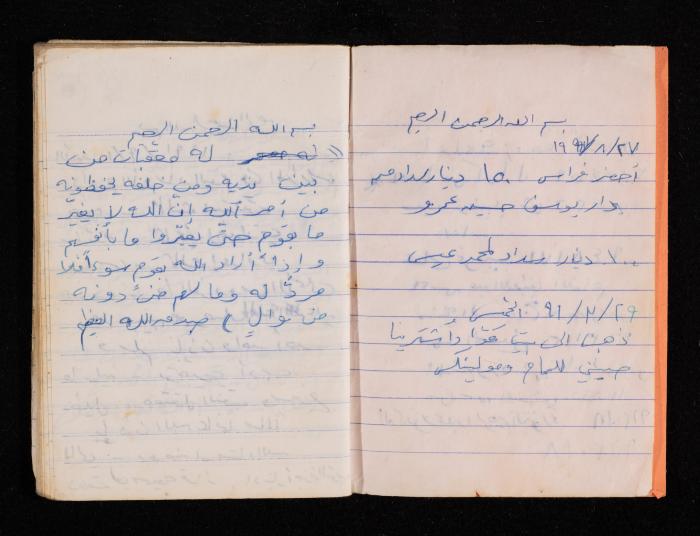 بسم الله الرحمن الرحيم
١٩٩١/٨/٢٧
احضر فراس ١٥٠ دينار سداد من
دار يوسف حبيب عمرو
٧٠٠ دينار سداد لمحمد عيسى
٩١/٣/٢٩ الخميس
ذهبنا الى بيت واشترينا
صيني للحاج
بسم الله الرحمن الرحيم
(( له معقبات من
بين يديه ومن خلفه يحفظونه
من أمر الله إن الله لا يغير
ما بقوم حتى يغيّروا ما بأنفسهم
وإذا أراد الله بقوم سوءاً فلا
مردَّ له وما لهم من دونه
من والٍ ) صدق الله العظيم